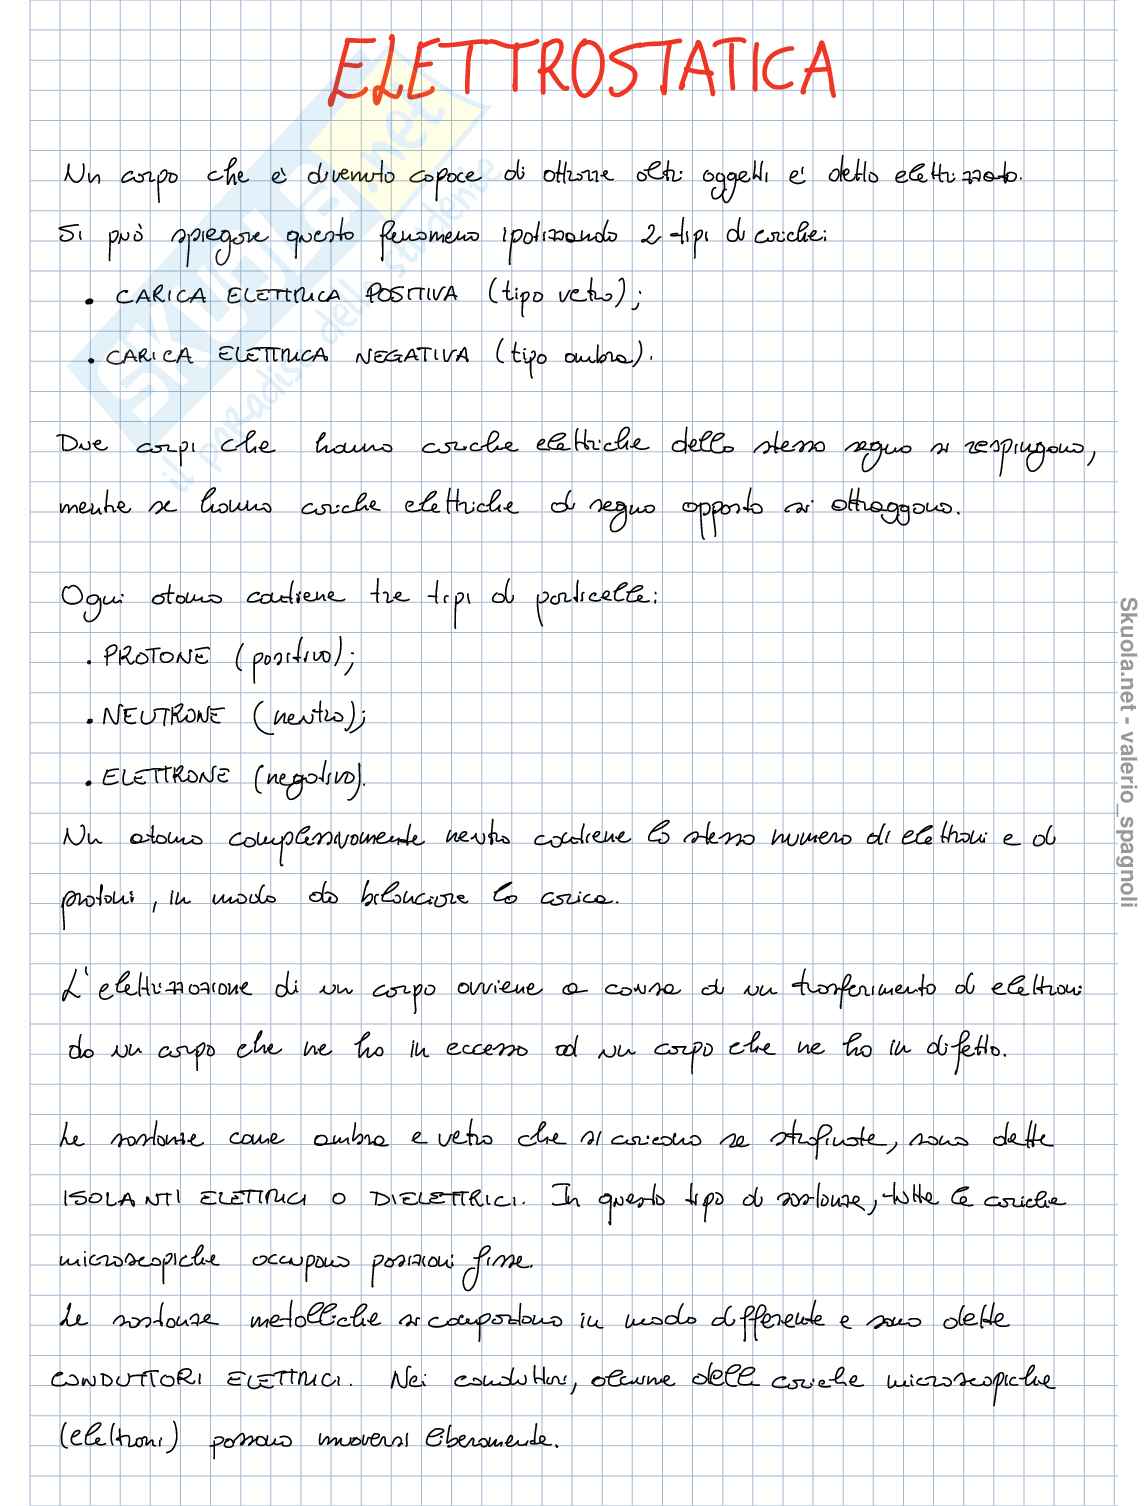 ELETTROSTATICA
Un corpo che è divenuto capace di attrarre altri oggetti è detto elettrizzato.
Si può spiegare questo fenomeno ipotizzando 2 tipi di cariche:
• CARICA ELETTRICA POSITIVA (tipo vetro);
• CARICA ELETTRICA NEGATIVA (tipo ambra).
Due corpi che hanno cariche elettriche dello stesso segno si respingono,
mentre se hanno cariche elettriche di segno opposto si attraggono.
Ogni atomo contiene tre tipi di particelle:
• PROTONE (positivo);
• NEUTRONE (neutro);
• ELETTRONE (negativo).
Un atomo complessivamente neutro contiene lo stesso numero di elettroni e di
protoni, in modo da bilanciare la carica.
L'elettrizzazione di un corpo avviene a causa di un trasferimento di elettroni
da un corpo che ne ha in eccesso ad un corpo che ne ha in difetto.
Le sostanze come ambra e vetro che si caricano se strofinate, sono dette
ISOLANTI ELETTRICI O DIELETTRICI. In questo tipo di sostanze, tutte le cariche
microscopiche occupano posizioni fisse.
Le sostanze metalliche si comportano in modo differente e sono dette
CONDUTTORI ELETTRICI. Nei conduttori, alcune delle cariche microscopiche
(elettroni) possono muoversi liberamente.
SKUOLA.net
il paradiso dello studente
Skuola.net - valerio_spagnoli